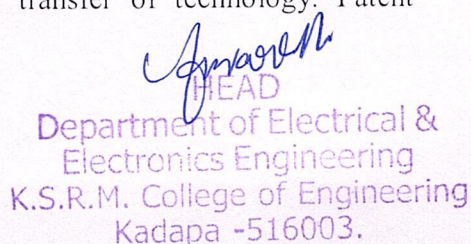 transfer of technology. Patent
HEAD
Department of Electrical &
Electronics Engineering
K.S.R.M. College of Engineering
Kadapa -516003.